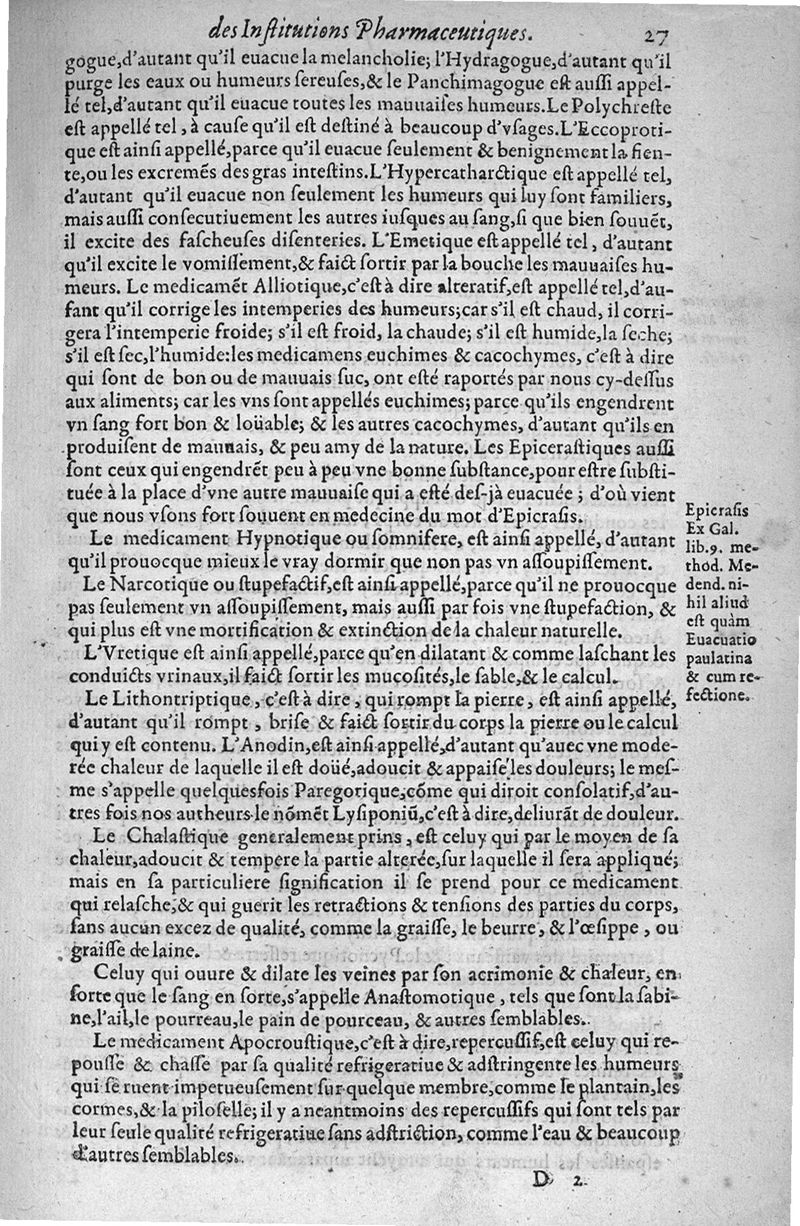 des Inſtitutions Pharmaceutiques. 27
gogue,d'autant qu'il euacue la melancholie; l'Hydragogue,d'autant qu'il
purge les eaux ou humeurs ſereuſes,& le Panchimagogue eſt auſſi appel-
lé tel,d'autant qu'il euacue toutes les mauuaiſes humeurs.Le Polychreſte
eſt appellé tel , à cauſe qu'il eſt deſtiné à beaucoup d'vſages.L'Eccoproti-
que eſt ainſi appellé,parce qu'il euacue ſeulement & benignement la fien-
te,ou les excremẽs des gras inteſtins.L'Hypercatharctique eſt appellé tel,
d'autant qu'il euacue non ſeulement les humeurs qui luy ſont familiers,
mais auſſi conſecutiuement les autres iuſques au ſang,ſi que bien ſouuẽt,
il excite des faſcheuſes diſenteries. L'Emetique eſt appellé tel , d'autant
qu'il excite le vomiſſement,& faict ſortir par la bouche les mauuaiſes hu-
meurs. Le medicamẽt Alliotique,c'eſt à dire alteratif,eſt appellé tel,d'au-
fant qu'il corrige les intemperies des humeurs;car s'il eſt chaud, il corri-
gera l'intemperie froide; s'il eſt froid, la chaude; s'il eſt humide,la ſeche;
s'il eſt ſec,l'humide:les medicamens euchimes & cacochymes, c'eſt à dire
qui ſont de bon ou de mauuais ſuc, ont eſté raportés par nous cy-deſſus
aux aliments; car les vns ſont appellés euchimes; parce qu'ils engendrent
vn ſang fort bon & loüable; & les autres cacochymes, d'autant qu'ils en
produiſent de mauuais, & peu amy de la nature. Les Epiceraſtiques auſſi
ſont ceux qui engendrẽt peu à peu vne bonne ſubſtance,pour eſtre ſubſti-
tuée à la place d'vne autre mauuaiſe qui a eſté deſ-jà euacuée ; d'où vient
que nous vſons fort ſouuent en medecine du mot d'Epicraſis.
Epicraſis
Ex Gal.
lib.9. me-
thod. Me-
dend. ni-
hil aliud
eſt quàm
Euacuatio
paulatina
& cum re-
fectione.
Le medicament Hypnotique ou ſomnifere, eſt ainſi appellé, d'autant
qu'il prouocque mieux le vray dormir que non pas vn aſſoupiſſement.
Le Narcotique ou ſtupefactif,eſt ainſi appellé,parce qu'il ne prouocque
pas ſeulement vn aſſoupiſſement, mais auſſi par fois vne ſtupefaction, &
qui plus eſt vne mortification & extinction de la chaleur naturelle.
L'Vretique eſt ainſi appellé,parce qu'en dilatant & comme laſchant les
conduicts vrinaux,il faict ſortir les mucoſités,le ſable,& le calcul.
Le Lithontriptique , c'eſt à dire , qui rompt la pierre , eſt ainſi appellé,
d'autant qu'il rompt , briſe & faict ſortir du corps la pierre ou le calcul
qui y eſt contenu. L'Anodin,eſt ainſi appellé,d'autant qu'auec vne mode-
rée chaleur de laquelle il eſt doüé,adoucit & appaiſe les douleurs; le meſ-
me s'appelle quelquesfois Paregorique,cõme qui diroit conſolatif,d'au-
tres fois nos autheurs le nõmẽt Lyſiponiũ,c'eſt à dire,deliurãt de douleur.
Le Chalaſtique generalement prins , eſt celuy qui par le moyen de ſa
chaleur,adoucit & tempere la partie alterée,ſur laquelle il ſera appliqué;
mais en ſa particuliere ſignification il ſe prend pour ce medicament
qui relaſche,& qui guerit les retractions & tenſions des parties du corps,
ſans aucun excez de qualité, comme la graiſſe, le beurre, & l'œſippe , ou
graiſſe de laine.
Celuy qui ouure & dilate les veines par ſon acrimonie & chaleur, en
ſorte que le ſang en ſorte,s'appelle Anaſtomotique , tels que ſont la ſabi-
ne,l'ail,le pourreau,le pain de pourceau, & autres ſemblables.
Le medicament Apocrouſtique,c'eſt à dire,repercuſſif,eſt celuy qui re-
pouſſe & chaſſe par ſa qualité refrigeratiue & adſtringente les humeurs
qui ſe ruent impetueuſement ſur quelque membre,comme le plantain,les
cormes,& la piloſelle; il y a neantmoins des repercuſſifs qui ſont tels par
leur ſeule qualité refrigeratiue ſans adſtriction, comme l'eau & beaucoup
d'autres ſemblables.
D 2